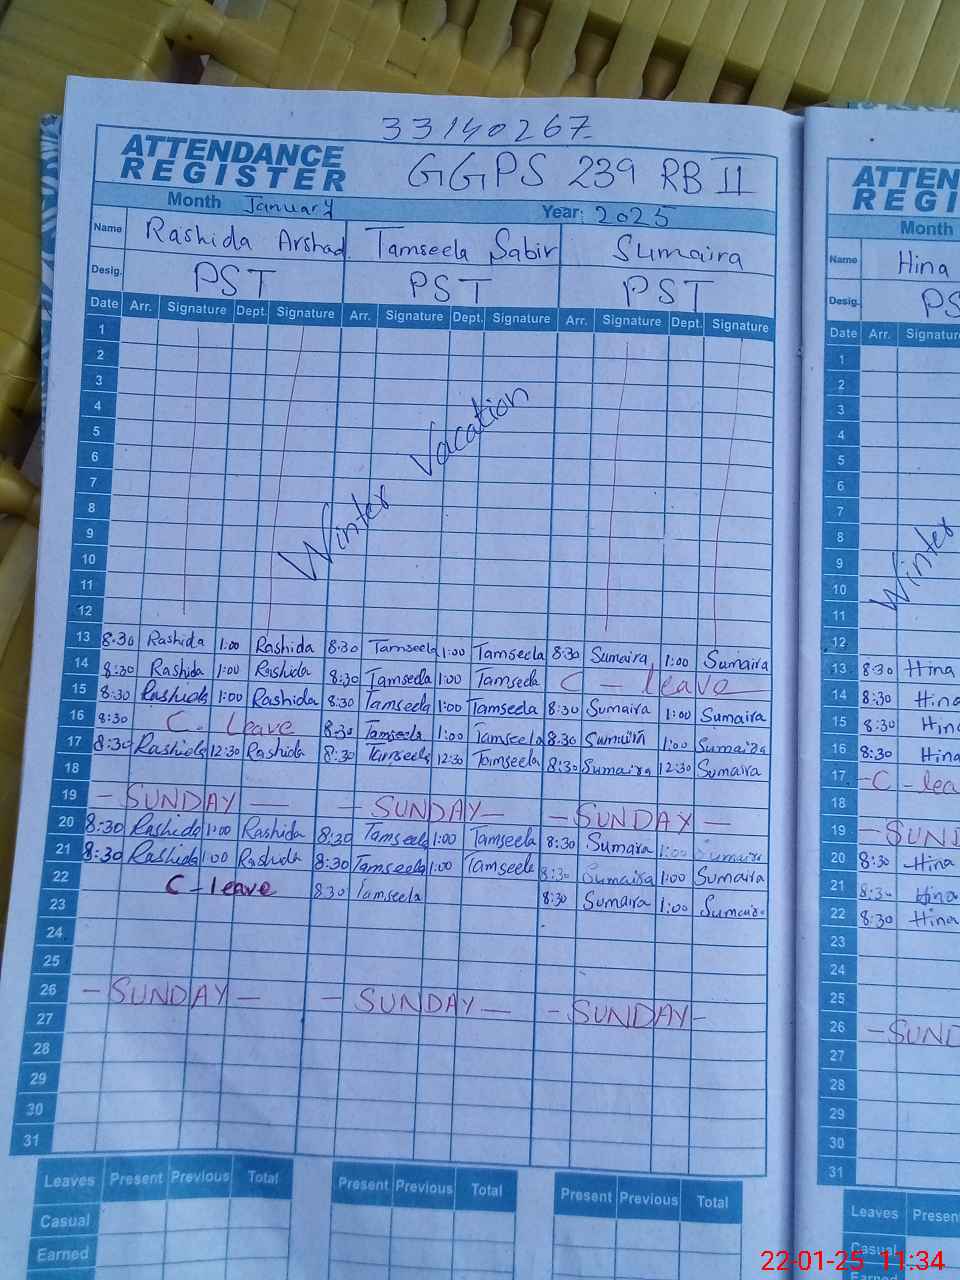 33140267
ATTENDANCE REGISTER GGPS 239 RB II
Month January Year: 2025
Name Rashida Arshad Tamseela Sabir Sumaira
Desig. PST PST PST
Date Arr. Signature Dept. Signature Arr. Signature Dept. Signature Arr. Signature Dept. Signature
1
2
3
4
5
6
7
8
9
10
11
12
Winter Vacation
13 8:30 Rashida 1:00 Rashida 8:30 Tamseela 1:00 Tamseela 8:30 Sumaira 1:00 Sumaira
14 8:30 Rashida 1:00 Rashida 8:30 Tamseela 1:00 Tamseela C - leave
15 8:30 Rashida 1:00 Rashida 8:30 Tamseela 1:00 Tamseela 8:30 Sumaira 1:00 Sumaira
16 8:30 C. Leave 8:30 Tamseela 1:00 Tamseela 8:30 Sumaira 1:00 Sumaira
17 8:30 Rashida 12:30 Rashida 8:30 Tamseela 12:30 Tamseela 8:30 Sumaira 12:30 Sumaira
18
19 - SUNDAY - - SUNDAY - - SUNDAY -
20 8:30 Rashida 1:00 Rashida 8:30 Tamseela 1:00 Tamseela 8:30 Sumaira 1:00 Sumaira
21 8:30 Rashida 1:00 Rashida 8:30 Tamseela 1:00 Tamseela 8:30 Sumaira 1:00 Sumaira
22 C - leave 8:30 Tamseela 8:30 Sumaira 1:00 Sumaira
23
24
25
26 - SUNDAY - - SUNDAY - - SUNDAY -
27
28
29
30
31
Leaves Present Previous Total Present Previous Total Present Previous Total
Casual
Earned
ATTEN
REGI
Month
Name Hina
Desig. PS
Date Arr. Signature
1
2
3
4
5
6
7
8
9
10
11
12
Winter
13 8:30 Hina
14 8:30 Hina
15 8:30 Hina
16 8:30 Hina
17 -C - lea
18
19 - SUND
20 8:30 Hina
21 8:30 Hina
22 8:30 Hina
23
24
25
26 - SUND
27
28
29
30
31
Leaves Presen
Casual
Earned
22-01-25 11:34